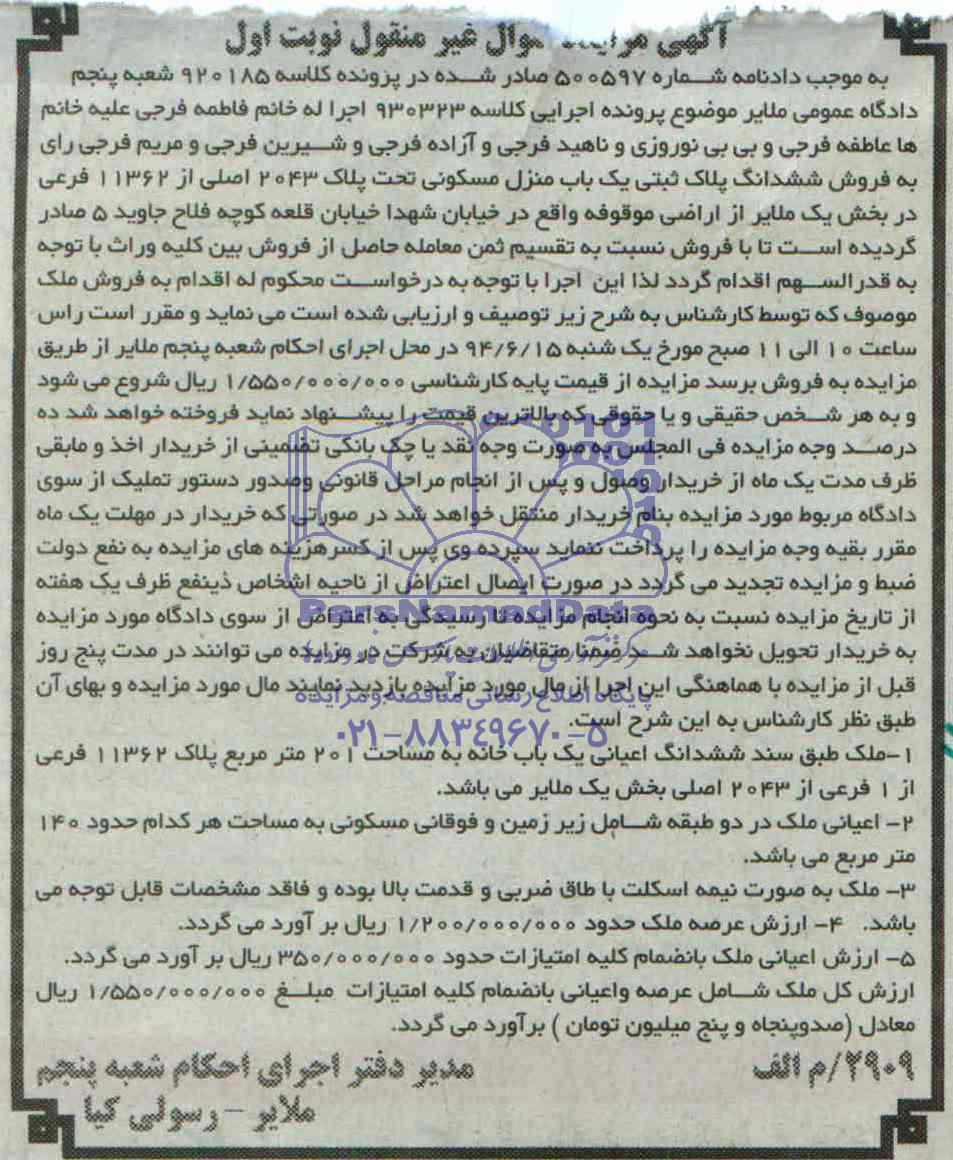 آگهی مزایده اموال غیر منقول نوبت اول
به موجب دادنامه شماره ۵۰۰۵۹۷ صادر شده در پرونده کلاسه ۹۲۰۱۸۵ شعبه پنجم
دادگاه عمومی ملایر موضوع پرونده اجرایی کلاسه ۹۳۰۳۲۳ اجرا له خانم فاطمه فرجی علیه خانم
ها عاطفه فرجی و بی بی نوروزی و ناهید فرجی و آزاده فرجی و شیرین فرجی و مریم فرجی رای
به فروش ششدانگ پلاک ثبتی یک باب منزل مسکونی تحت پلاک ۲۰۴۳ اصلی از ۱۱۳۶۲ فرعی
در بخش یک ملایر از اراضی موقوفه واقع در خیابان شهدا خیابان قلعه کوچه فلاح جاوید ۵ صادر
گردیده است تا با فروش نسبت به تقسیم ثمن معامله حاصل از فروش بین کلیه وراث با توجه
به قدرالسهم اقدام گردد لذا این اجرا با توجه به درخواست محکوم له اقدام به فروش ملک
موصوف که توسط کارشناس به شرح زیر توصیف و ارزیابی شده است می نماید و مقرر است راس
ساعت ۱۰ الی ۱۱ صبح مورخ یک شنبه ۹۴/۶/۱۵ در محل اجرای احکام شعبه پنجم ملایر از طریق
مزایده به فروش برسد مزایده از قیمت پایه کارشناسی ۱/۵۵۰/۰۰۰/۰۰۰ ریال شروع می شود
و به هر شخص حقیقی و یا حقوقی که بالاترین قیمت را پیشنهاد نماید فروخته خواهد شد ده
درصد وجه مزایده فی المجلس به صورت وجه نقد یا چک بانکی تضمینی از خریدار اخذ و مابقی
ظرف مدت یک ماه از خریدار وصول و پس از انجام مراحل قانونی وصدور دستور تملیک از سوی
دادگاه مربوط مورد مزایده بنام خریدار منتقل خواهد شد در صورتی که خریدار در مهلت یک ماه
مقرر بقیه وجه مزایده را پرداخت ننماید سپرده وی پس از کسرهزینه های مزایده به نفع دولت
ضبط و مزایده تجدید می گردد در صورت ایصال اعتراض از ناحیه اشخاص ذینفع ظرف یک هفته
از تاریخ مزایده نسبت به نحوه انجام مزایده تا رسیدگی به اعتراض از سوی دادگاه مورد مزایده
به خریدار تحویل نخواهد شد ضمنا متقاضیان به شرکت در مزایده می توانند در مدت پنج روز
قبل از مزایده با هماهنگی این اجرا از مال مورد مزایده بازدید نمایند مال مورد مزایده و بهای آن
طبق نظر کارشناس به این شرح است.
۱-ملک طبق سند ششدانگ اعیانی یک باب خانه به مساحت ۲۰۱ متر مربع پلاک ۱۱۳۶۲ فرعی
از ۱ فرعی از ۲۰۴۳ اصلی بخش یک ملایر می باشد.
۲- اعیانی ملک در دو طبقه شامل زیر زمین و فوقانی مسکونی به مساحت هر کدام حدود ۱۴۰
متر مربع می باشد.
۳- ملک به صورت نیمه اسکلت با طاق ضربی و قدمت بالا بوده و فاقد مشخصات قابل توجه می
باشد. ۴- ارزش عرصه ملک حدود ۱/۲۰۰/۰۰۰/۰۰۰ ریال بر آورد می گردد.
۵- ارزش اعیانی ملک بانضمام کلیه امتیازات حدود ۳۵۰/۰۰۰/۰۰۰ ریال بر آورد می گردد.
ارزش کل ملک شامل عرصه واعیانی بانضمام کلیه امتیازات مبلغ ۱/۵۵۰/۰۰۰/۰۰۰ ریال
معادل (صدوپنجاه و پنج میلیون تومان ) برآورد می گردد.
۲۹۰۹/م الف
مدیر دفتر اجرای احکام شعبه پنجم
ملایر – رسولی کیا
ParsNamadData
پایگاه اطلاع رسانی مناقصه و مزایده
۰۲۱-۸۸۳۴۹۶۷۰-۵